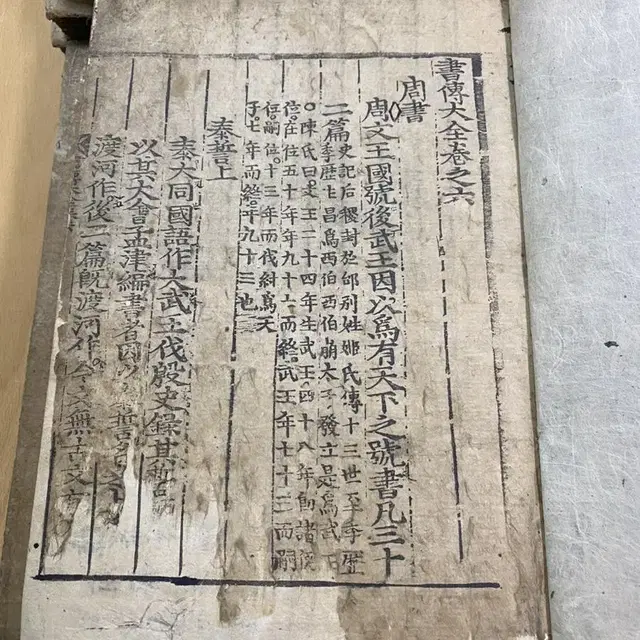 書傳大全卷之六
周書
周文王國號後武王因以爲有天下之號書凡三十
二篇史記后稷封於邰別姓姬氏傳十三世至季歷
季歷生昌爲西伯西伯崩太子發立是爲武王
○陳氏曰文王二十四年生武王四十八年即諸侯
位在位五十年年九十而終武王年七十三而嗣
位嗣位十三年而伐紂爲天
子七年而終年九十三也
泰誓上
泰大同國語作大武王伐殷史錄其
以其大會孟津編書者因以誓名之
渡河作後二篇旣渡河作今文無古文